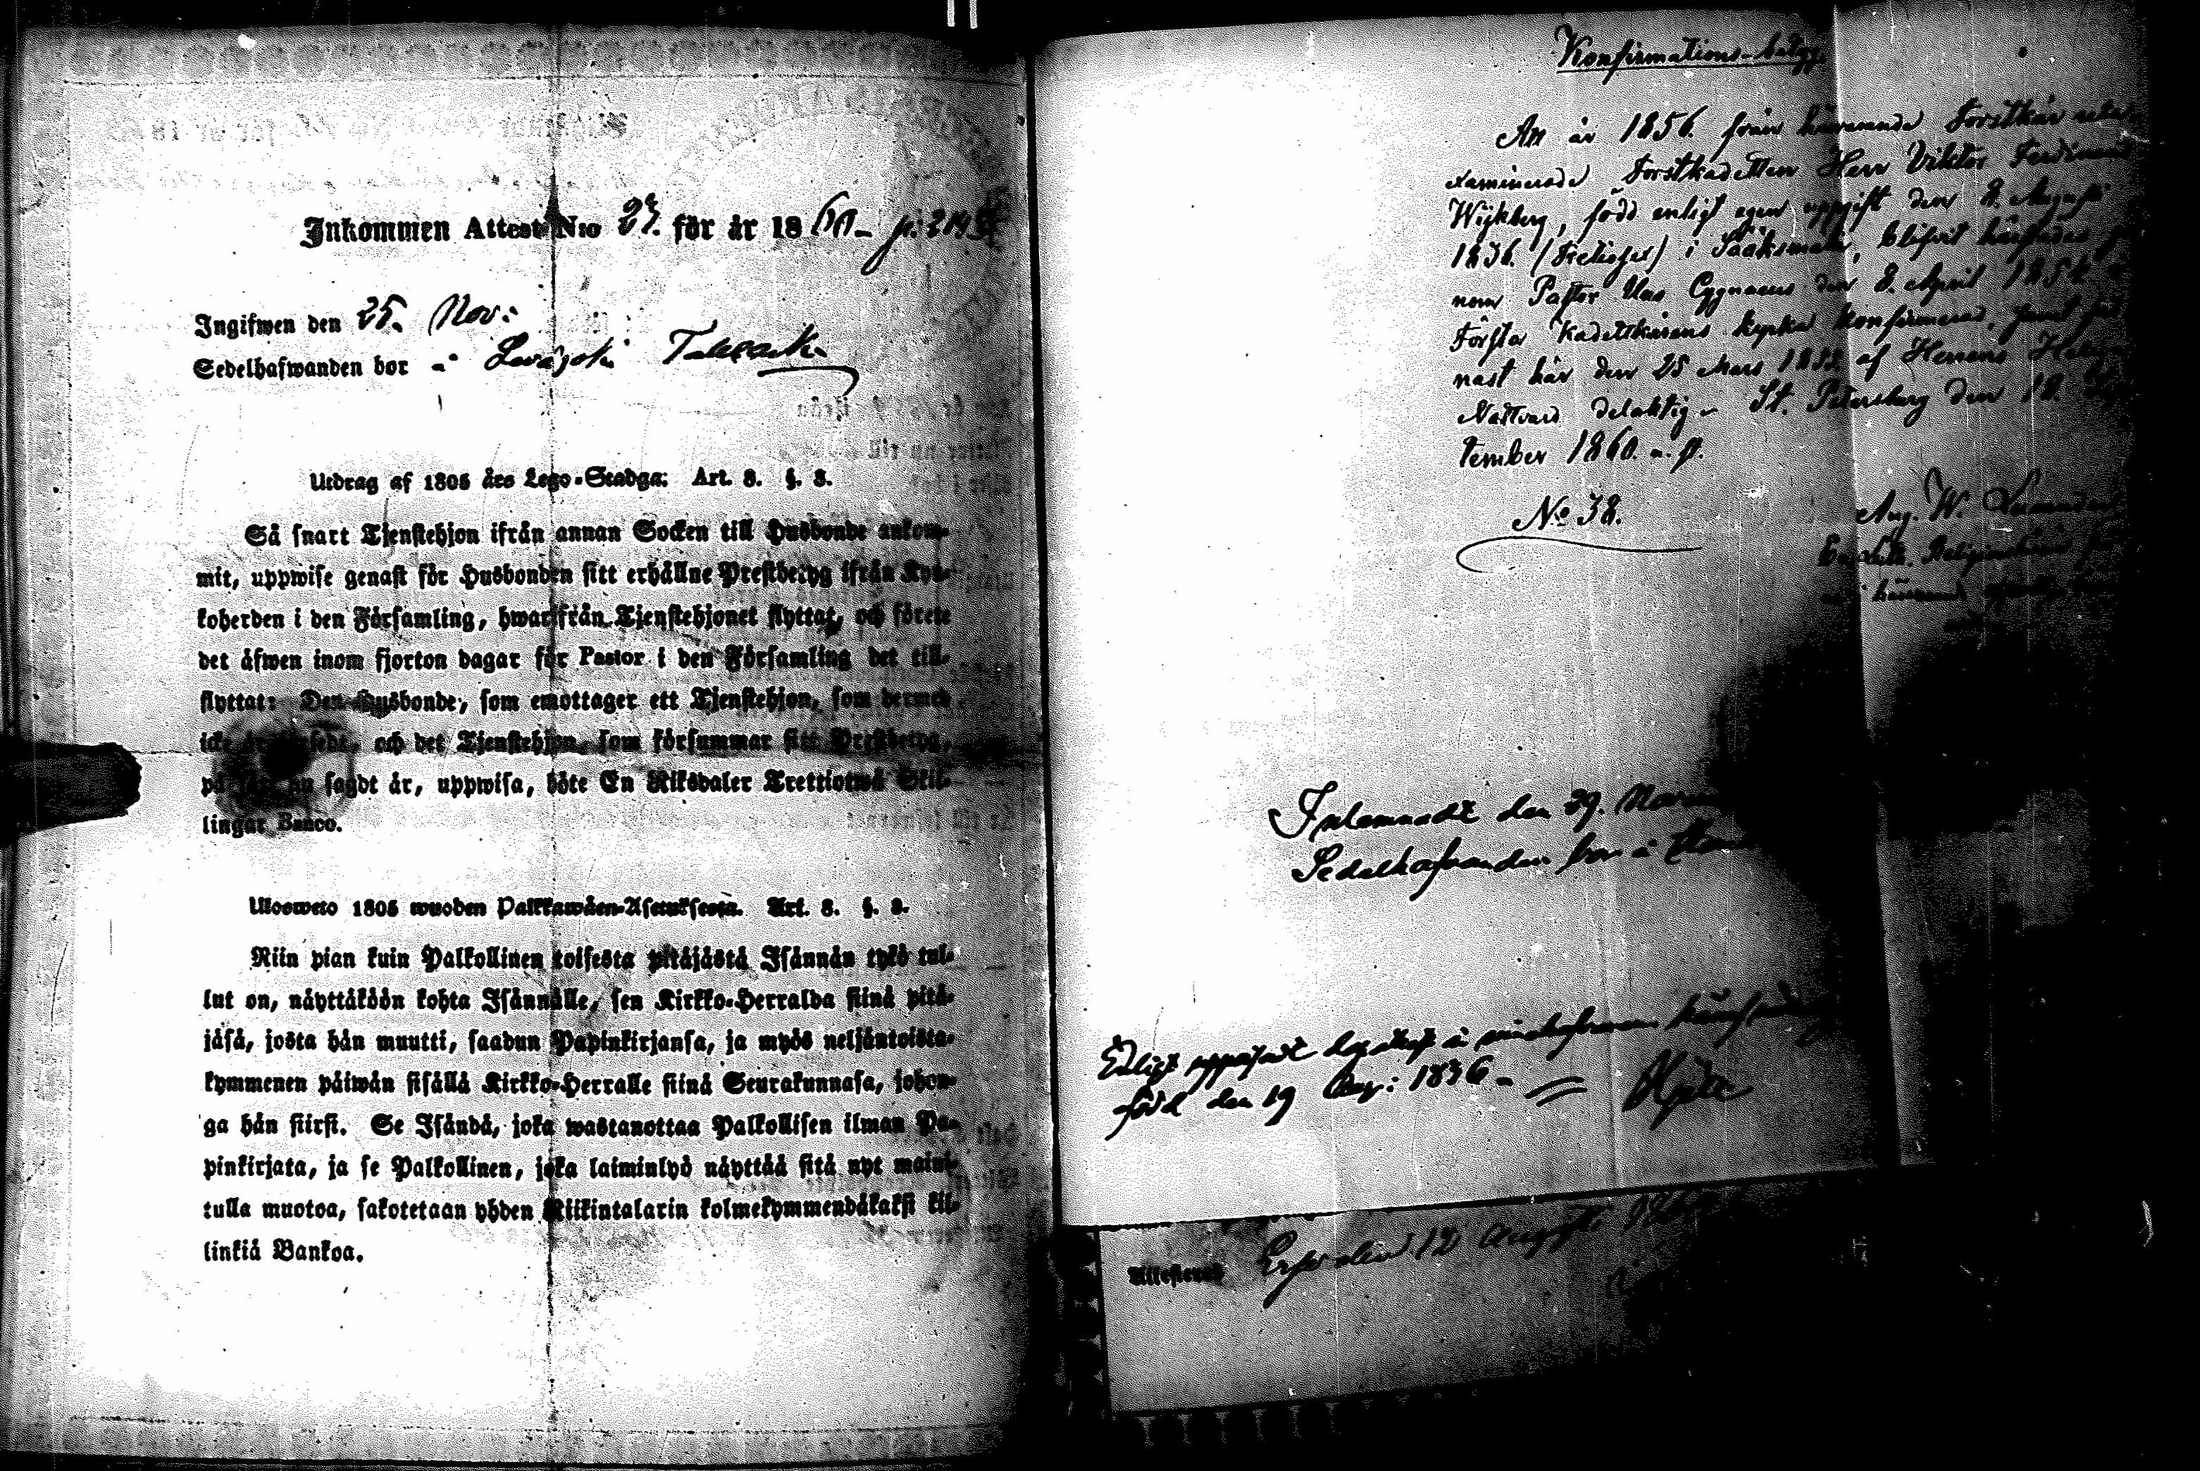 Inkommen Attest N:o 27. för år 1860 - p: 214
Ingifwen den 25. Nov:
Sedelhafwanden bor i
Utdrag af 1805 års Lego-Stadga: Art. 8. §. 3.
Så snart Tjenstehjon ifrån annan Socken till Husbonde ankom-
mit, uppwise genast för Husbonden sitt erhållne Prestbetyg ifrån Kyr-
koherden i den Församling, hwarifrån Tjenstehjonet flyttat, och förete
det äfwen inom fjorton dagar för Pastor i den Församling det till-
flyttat: Den Husbonde, som emottager ett Tjenstehjon, som dermed
icke är försedt, och det Tjenstehjon, som försummar sitt Prestbetyg,
på sätt nu sagdt är, uppwisa, böte En Riksdaler Trettiotwå Skil-
lingar Banco.
Ulosweto 1805 wuoden Palkkawäen-Asetuksesta. Art. 8. §. 3.
Niin pian kuin Palkollinen toisesta pitäjästä Isännän tykö tul-
lut on, näyttäköön kohta Isännälle, sen Kirkko-Herralda siinä pitä-
jäsä, josta hän muutti, saadun Papinkirjansa, ja myös neljäntoista-
kymmenen päiwän sisällä Kirkko-Herralle siinä Seurakunnasa, johon-
ga hän siirsi. Se Isändä, joka wastanottaa Palkollisen ilman Pa-
pinkirjata, ja se Palkollinen, joka laiminlyö näyttää sitä nyt maini-
tulla muotoa, sakotetaan yhden Riikintalarin kolmekymmendäkaksi kil-
linkiä Bankoa.
Konfirmations-betyg
An år 1856 från härvarande Forstkår
examinerade Forstkadetten Herr Viktor Ferdinand
Wijkberg, född enligt egen uppgift den 8. Augusti
1836. i Sääksmäki, blifvit härstädes
nom Pastor Uno Cygnaeus den 8. April 1854
Första Kadettkårens kyrka konfirmerad, samt
nast här den 25 Mars 1855 af Herrens Helga
Nattvard delaktig - St. Petersburg den 18. Sep
tember 1860. n. st.
No 38.
Aug. W.
Inlemnadt den 29. Novem
Sedelhafvanden bor i
Enligt uppvisadt
född den 19 Aug: 1836 -
Attesterar den 12 Augusti